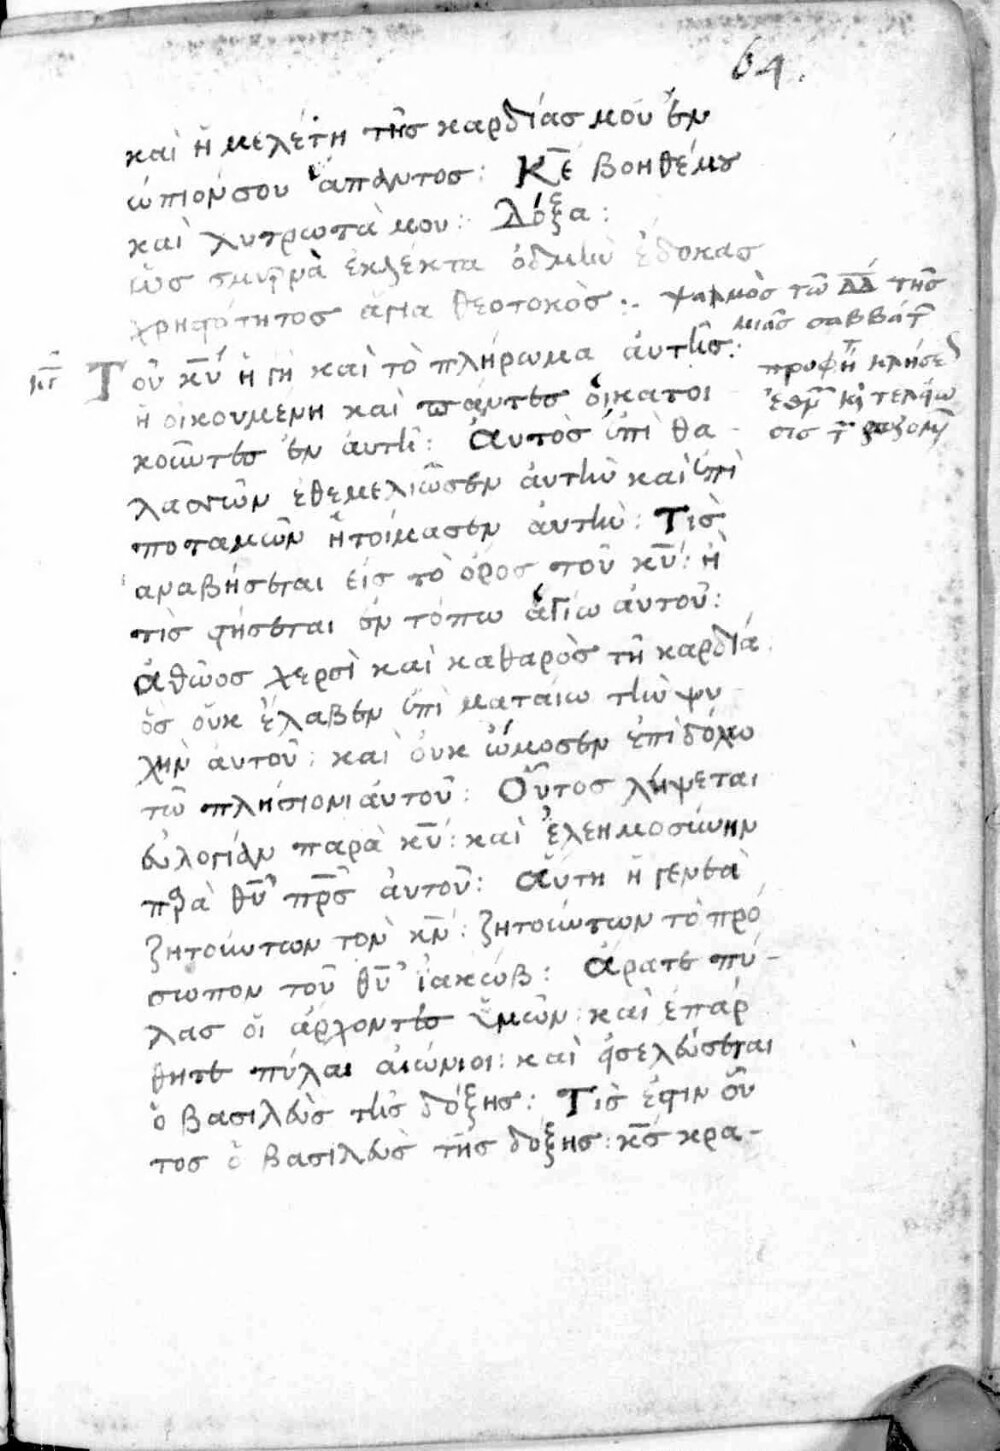 64.
καὶ ἡ μελέτη τῆς καρδίας μου ἐν
ώπιόν σου ἁπάντος: Κ̅ε̅ βοηθέ μου
καὶ λυτρωτά μου: Δόξα:
ὡς σμύρνα ἐκλέκτα ὀδμὴν ἔδοκας
χρηστότητος ἁγία θεοτοκὸς:. ψαλμὸς τῶ Δ̅Α̅Δ̅ τῆς
μιᾶς σαββάτ
κγ Τοῦ κ̅υ̅ ἡ γῆ καὶ τὸ πλήρωμα ἀυτῆς:
ἡ οἰκουμένη καὶ πάντες ὁι κατοι
κοῦντες ἐν ἀυτῆ: Ἀυτὸς ἐπὶ θα
λασσῶν ἐθεμελίωσεν ἀυτὴν καὶ ἐπὶ
ποταμῶν ἡτοίμασεν ἀυτὴν: Τὶς
αναβήσεται εἰς τὸ ὄρος τοῦ κ̅υ̅: ἢ
τὶς στήσεται ἐν τόπω ἁγίω ἀυτοῦ:
ἀθῶος χερσὶ καὶ καθαρὸς τῆ καρδία
ὃς οὐκ ἔλαβεν ἐπὶ ματαίω τὴν ψυ
χὴν ἀυτοῦ: καὶ ὀυκ ὤμοσεν ἐπὶ δόλω
τῶ πλησίον ἀυτοῦ: Οὗτος λήψεται
ἐυλογίαν παρὰ κ̅υ̅: καὶ ἐλεημοσύνην
παρὰ θ̅υ̅ σ̅ρ̅ς̅ ἀυτοῦ: αὕτη ἡ γενεὰ
ζητούντων τὸν κ̅ν̅: ζητούντων τὸ πρό
σωπον τοῦ θ̅υ̅ ἰακώβ: Ἄρατε πύ-
λας οἱ ἄρχοντες ὑμῶν: καὶ ἐπάρ
θητε πύλαι αἰώνιοι: καὶ εἰσελεύσεται
ὁ βασιλεὺς τῆς δόξης: Τὶς ἐστιν οὗ
τος ὁ βασιλεὺς τῆς δόξης: κ̅ς̅ κρα-